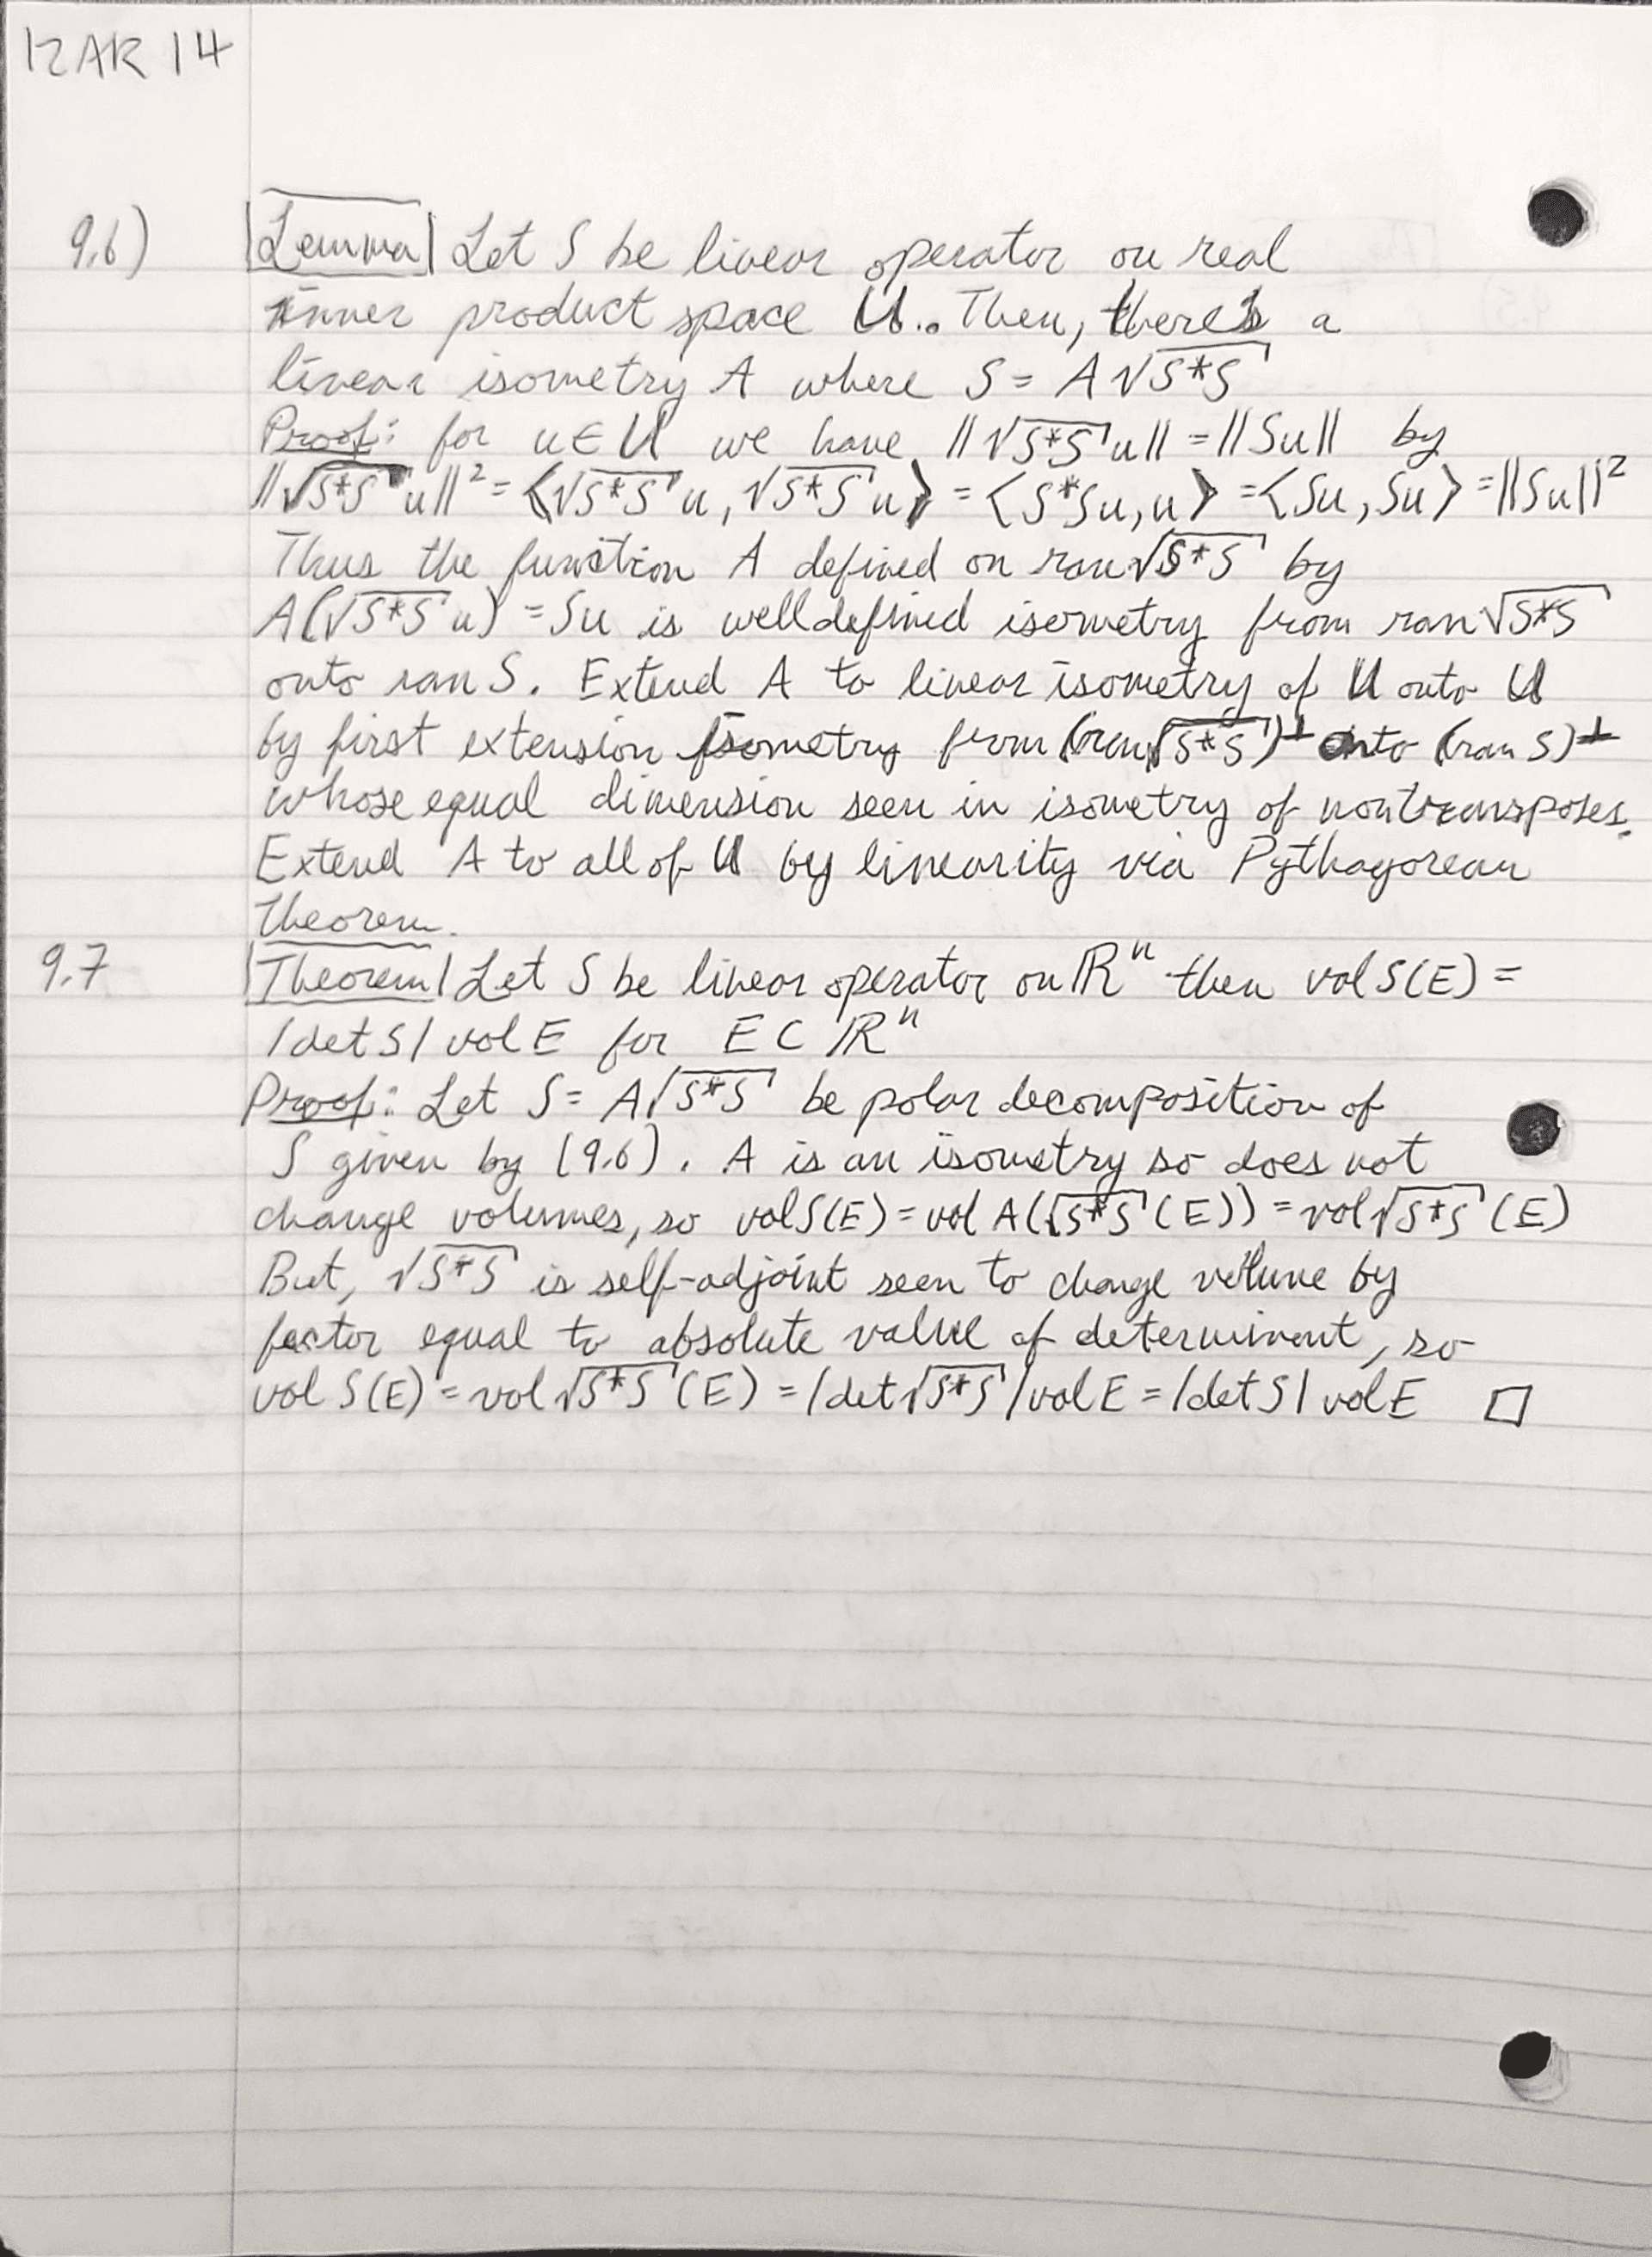 RAR 14
9.6) Lemma Let S be linear operator on real
inner product space U.. Then, there's a
linear isometry A where S = A√S*S
Proof: for u ∈ U we have ||√S*S u|| = ||Su|| by
||√S*S u||² = ⟨√S*S u, √S*S u⟩ = ⟨S*Su, u⟩ = ⟨Su, Su⟩ = ||Su||²
Thus the function A defined on ran√S*S by
A(√S*S u) = Su is welldefined isometry from ran√S*S
onto ran S. Extend A to linear isometry of U onto U
by first extension isometry from (ran√S*S)⊥ onto (ran S)⊥
whose equal dimension seen in isometry of nontransposes.
Extend A to all of U by linearity via Pythagorean
theorem.
9.7 Theorem Let S be linear operator on ℝⁿ then vol S(E) =
|det S| vol E for E ⊂ ℝⁿ
Proof: Let S = A√S*S be polar decomposition of
S given by (9.6). A is an isometry so does not
change volumes, so vol S(E) = vol A(√S*S (E)) = vol√S*S (E)
But, √S*S is self-adjoint seen to change volume by
factor equal to absolute value of determinent, so
vol S(E) = vol√S*S (E) = |det√S*S| vol E = |det S| vol E □